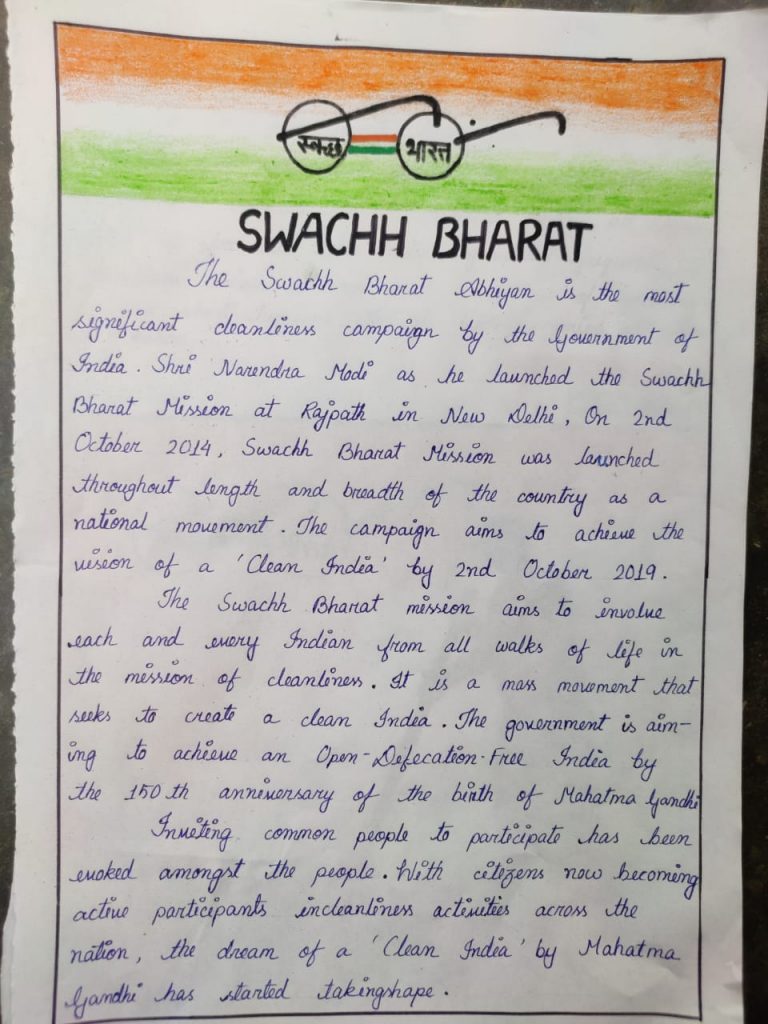 स्वच्छ भारत
SWACHH BHARAT
The Swachh Bharat Abhiyan is the most
significant cleanliness campaign by the Government of
India. Shri Narendra Modi as he launched the Swachh
Bharat Mission at Rajpath in New Delhi, On 2nd
October 2014, Swachh Bharat Mission was launched
throughout length and breadth of the country as a
national movement. The campaign aims to achieve the
vision of a 'Clean India' by 2nd October 2019.
The Swachh Bharat mission aims to involve
each and every Indian from all walks of life in
the mission of cleanliness. It is a mass movement that
seeks to create a clean India. The government is aim-
ing to achieve an Open-Defecation-Free India by
the 150th anniversary of the birth of Mahatma Gandhi
Inviting common people to participate has been
evoked amongst the people. With citizens now becoming
active participants incleanliness activities across the
nation, the dream of a 'Clean India' by Mahatma
Gandhi has started takingshape.